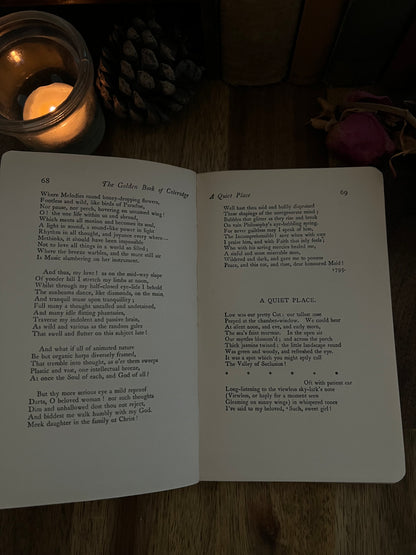 68
The Golden Book of Coleridge
Where Melodies round honey-dropping flowers,
Footless and wild, like birds of Paradise,
Nor pause, nor perch, hovering on untamed wing!
O! the one life within us and abroad,
Which meets all motion and becomes its soul,
A light in sound, a sound-like power in light
Rhythm in all thought, and joyance every where—
Methinks, it should have been impossible
Not to love all things in a world so filled;
Where the breeze warbles, and the mute still air
Is Music slumbering on her instrument.
And thus, my love! as on the mid-way slope
Of yonder hill I stretch my limbs at noon,
Whilst through my half-closed eye-lids I behold
The sunbeams dance, like diamonds, on the main,
And tranquil muse upon tranquillity;
Full many a thought uncalled and undetained,
And many idle flitting phantasies,
Traverse my indolent and passive brain,
As wild and various as the random gales
That swell and flutter on this subject lute!
And what if all of animated nature
Be but organic harps diversely framed,
That tremble into thought, as o'er them sweeps
Plastic and vast, one intellectual breeze,
At once the Soul of each, and God of all?
But thy more serious eye a mild reproof
Darts, O beloved woman! nor such thoughts
Dim and unhallowed dost thou not reject,
And biddest me walk humbly with my God.
Meek daughter in the family of Christ!
A Quiet Place
69
Well hast thou said and holily dispraised
These shapings of the unregenerate mind;
Bubbles that glitter as they rise and break
On vain Philosophy's aye-babbling spring.
For never guiltless may I speak of him,
The Incomprehensible! save when with awe
I praise him, and with Faith that inly feels;
Who with his saving mercies healed me,
A sinful and most miserable man,
Wildered and dark, and gave me to possess
Peace, and this cot, and thee, dear honoured Maid!
1795.
A QUIET PLACE.
Low was our pretty Cot: our tallest rose
Peeped at the chamber-window. We could hear
At silent noon, and eve, and early morn,
The sea's faint murmur. In the open air
Our myrtles blossom'd; and across the porch
Thick jasmins twined: the little landscape round
Was green and woody, and refreshed the eye.
It was a spot which you might aptly call
The Valley of Seclusion!
* * * * * * *
Oft with patient ear
Long-listening to the viewless sky-lark's note
(Viewless, or haply for a moment seen
Gleaming on sunny wings) in whispered tones
I've said to my beloved, 'Such, sweet girl!